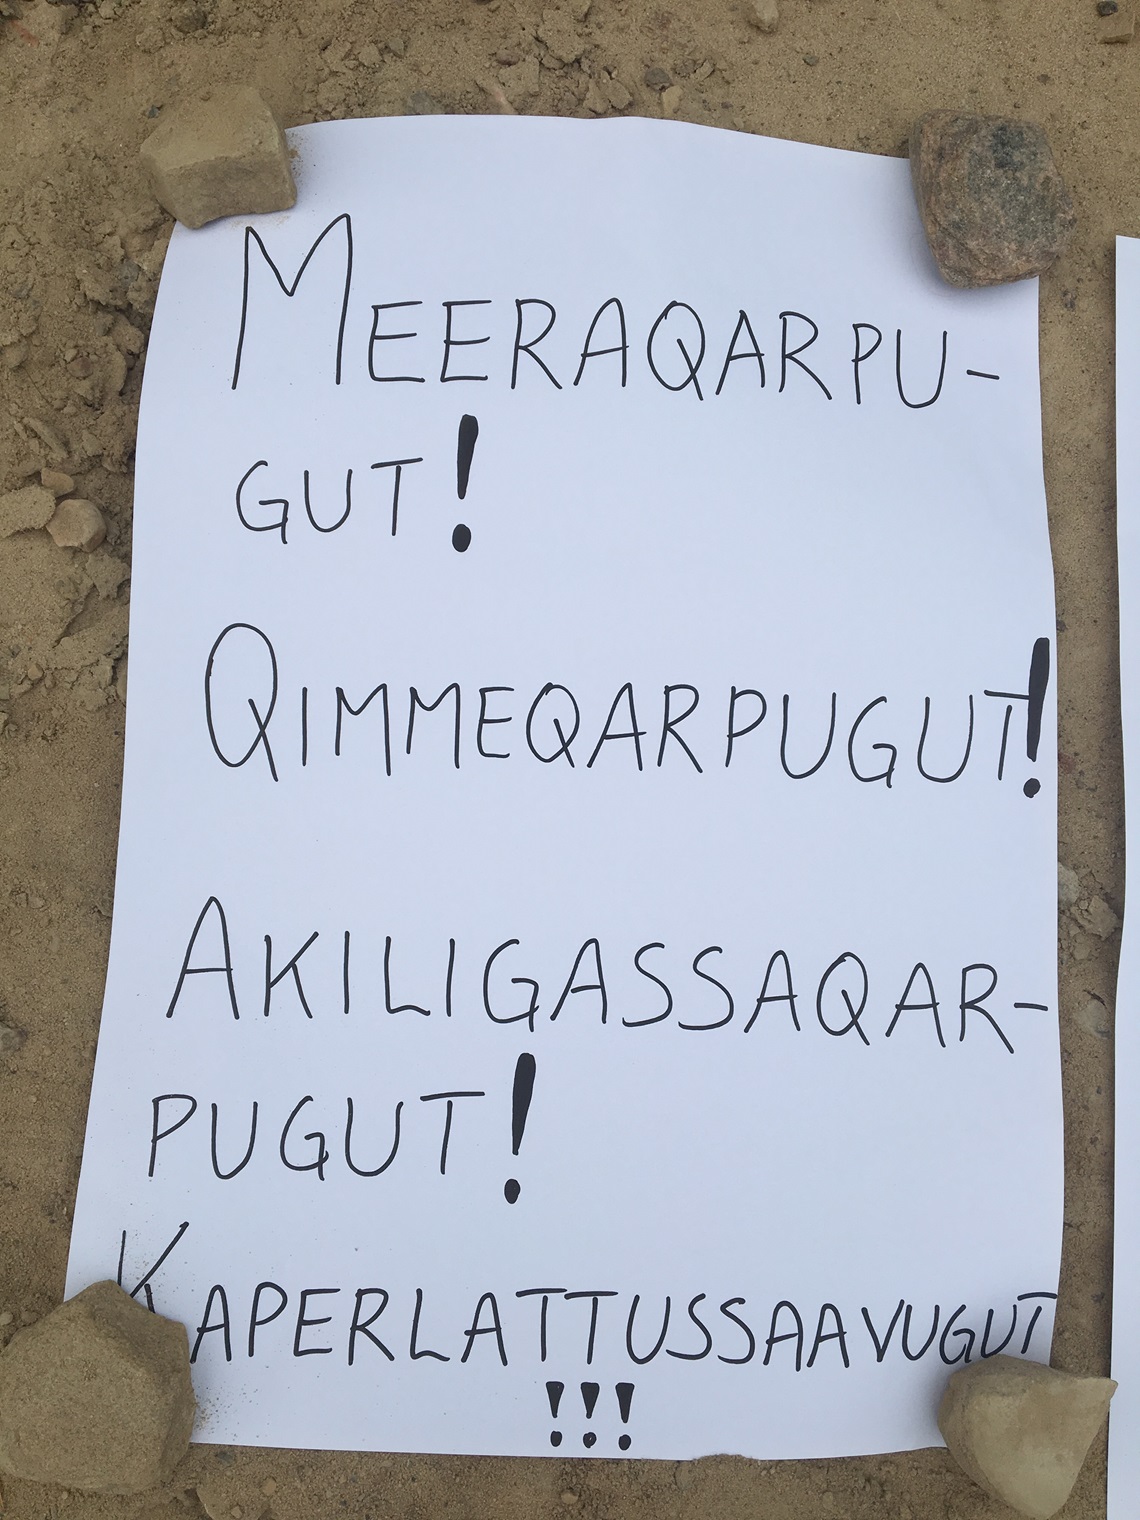 MEERAQARPU-
GUT!
QIMMEQARPUGUT!
AKILIGASSAQAR-
PUGUT!
KAPERLATTUSSAAVUGUT
!!!